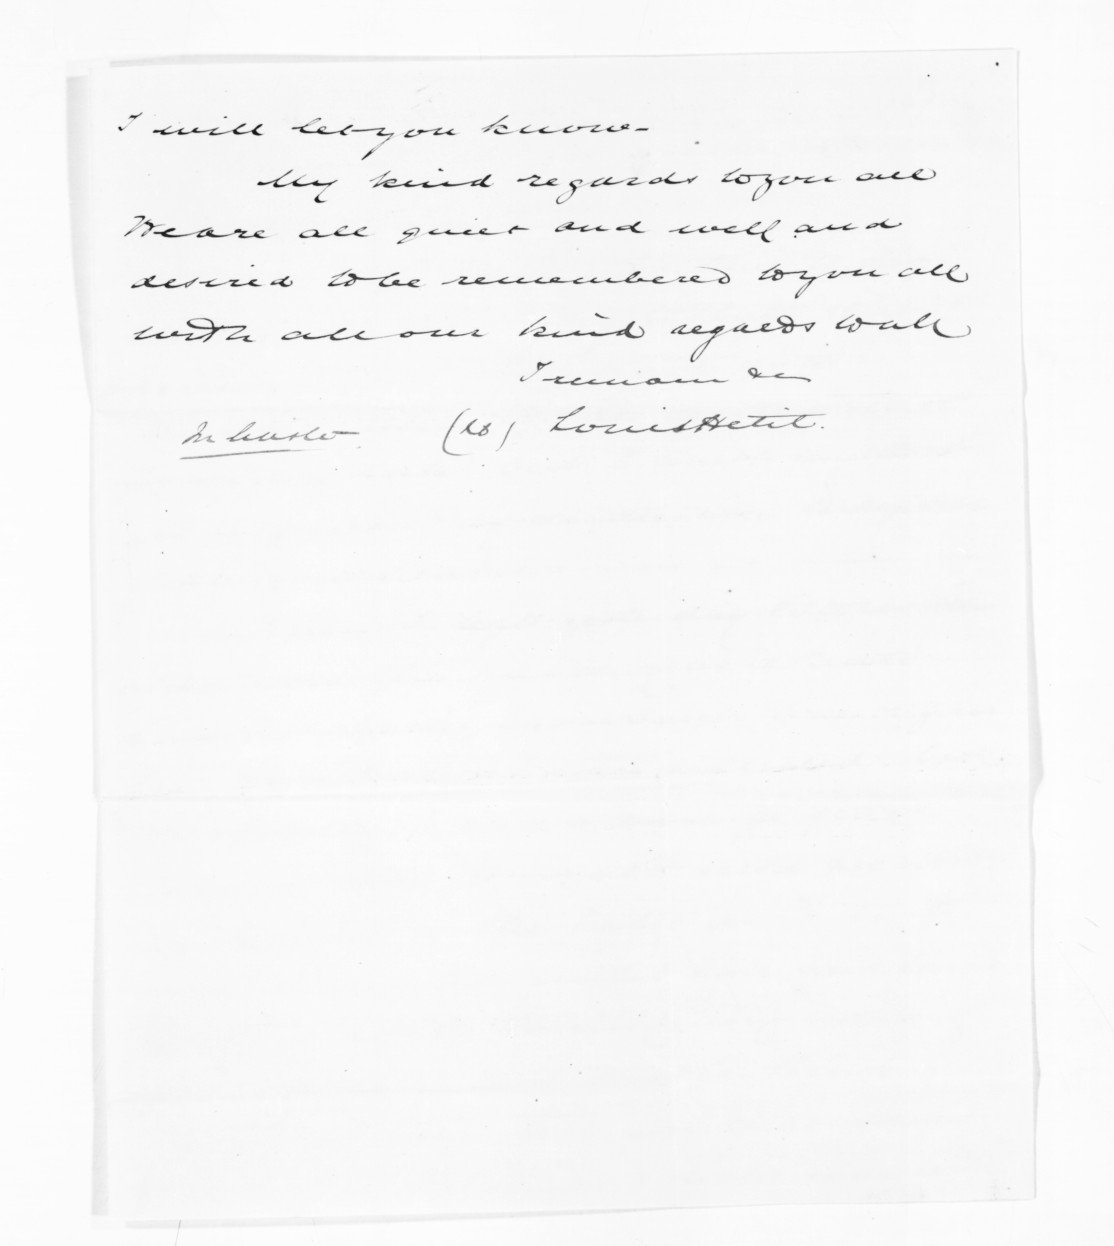 I will let you know -
My kind regards to you all
We are all quiet and well and
desired to be remembered to you all
with all our kind regards to all
I remain &c
(sd) Louis Hetit.